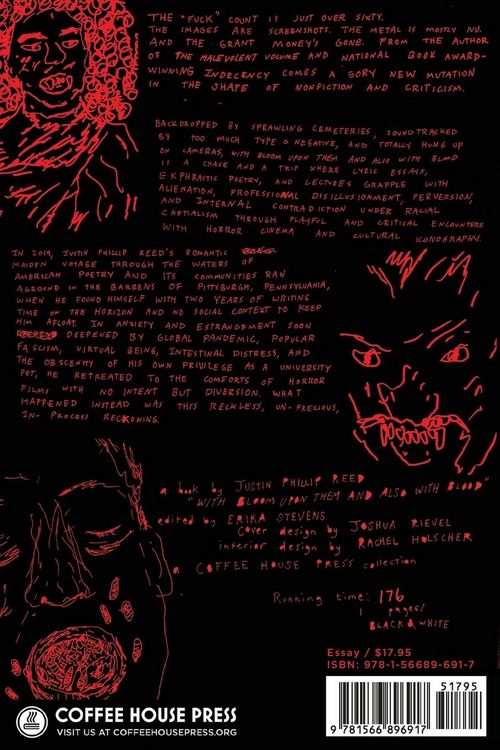 THE "FUCK" COUNT IS JUST OVER SIXTY.
THE IMAGES ARE SCREENSHOTS. THE METAL IS MOSTLY NU.
AND THE GRANT MONEY'S GONE. FROM THE AUTHOR
OF THE MALEVOLENT VOLUME AND NATIONAL BOOK AWARD-
WINNING INDECENCY COMES A GORY NEW MUTATION
IN THE SHAPE OF NONFICTION AND CRITICISM.
BACKDROPPED BY SPRAWLING CEMETERIES, SOUNDTRACKED
BY TOO MUCH TYPE O NEGATIVE, AND TOTALLY HUNG UP
ON CAMERAS, WITH BLOOM UPON THEM AND ALSO WITH BLOOD
IS A CHASE AND A TRIP WHERE LYRIC ESSAYS,
EKPHRASTIC POETRY, AND LECTURES GRAPPLE WITH
ALIENATION, PROFESSIONAL DISILLUSIONMENT, PERVERSION,
AND INTERNAL CONTRADICTION UNDER RACIAL
CAPITALISM THROUGH PLAYFUL AND CRITICAL ENCOUNTERS
WITH HORROR CINEMA AND CULTURAL ICONOGRAPHY.
IN 2019, JUSTIN PHILLIP REED'S ROMANTIC
MAIDEN VOYAGE THROUGH THE WATERS OF
AMERICAN POETRY AND ITS COMMUNITIES RAN
AGROUND IN THE BARRENS OF PITTSBURGH, PENNSYLVANIA,
WHEN HE FOUND HIMSELF WITH TWO YEARS OF WRITING
TIME ON THE HORIZON AND NO SOCIAL CONTEXT TO KEEP
HIM AFLOAT. IN ANXIETY AND ESTRANGEMENT SOON
DEEPENED BY GLOBAL PANDEMIC, POPULAR
FASCISM, VIRTUAL BEING, INTESTINAL DISTRESS, AND
THE OBSCENITY OF HIS OWN PRIVILEGE AS A UNIVERSITY
PET, HE RETREATED TO THE COMFORTS OF HORROR
FILMS WITH NO INTENT BUT DIVERSION. WHAT
HAPPENED INSTEAD WAS THIS RECKLESS, UN-PRECIOUS,
IN-PROCESS RECKONING.
a book by JUSTIN PHILLIP REED
"WITH BLOOM UPON THEM AND ALSO WITH BLOOD"
edited by ERIKA STEVENS
cover design by JOSHUA RIEVEL
interior design by RACHEL HOLSCHER
a COFFEE HOUSE PRESS collection
Running time: 176
pages/
BLACK & WHITE
Essay / $17.95
ISBN: 978-1-56689-691-7
51795
9 781566 896917
COFFEE HOUSE PRESS
VISIT US AT COFFEEHOUSEPRESS.ORG